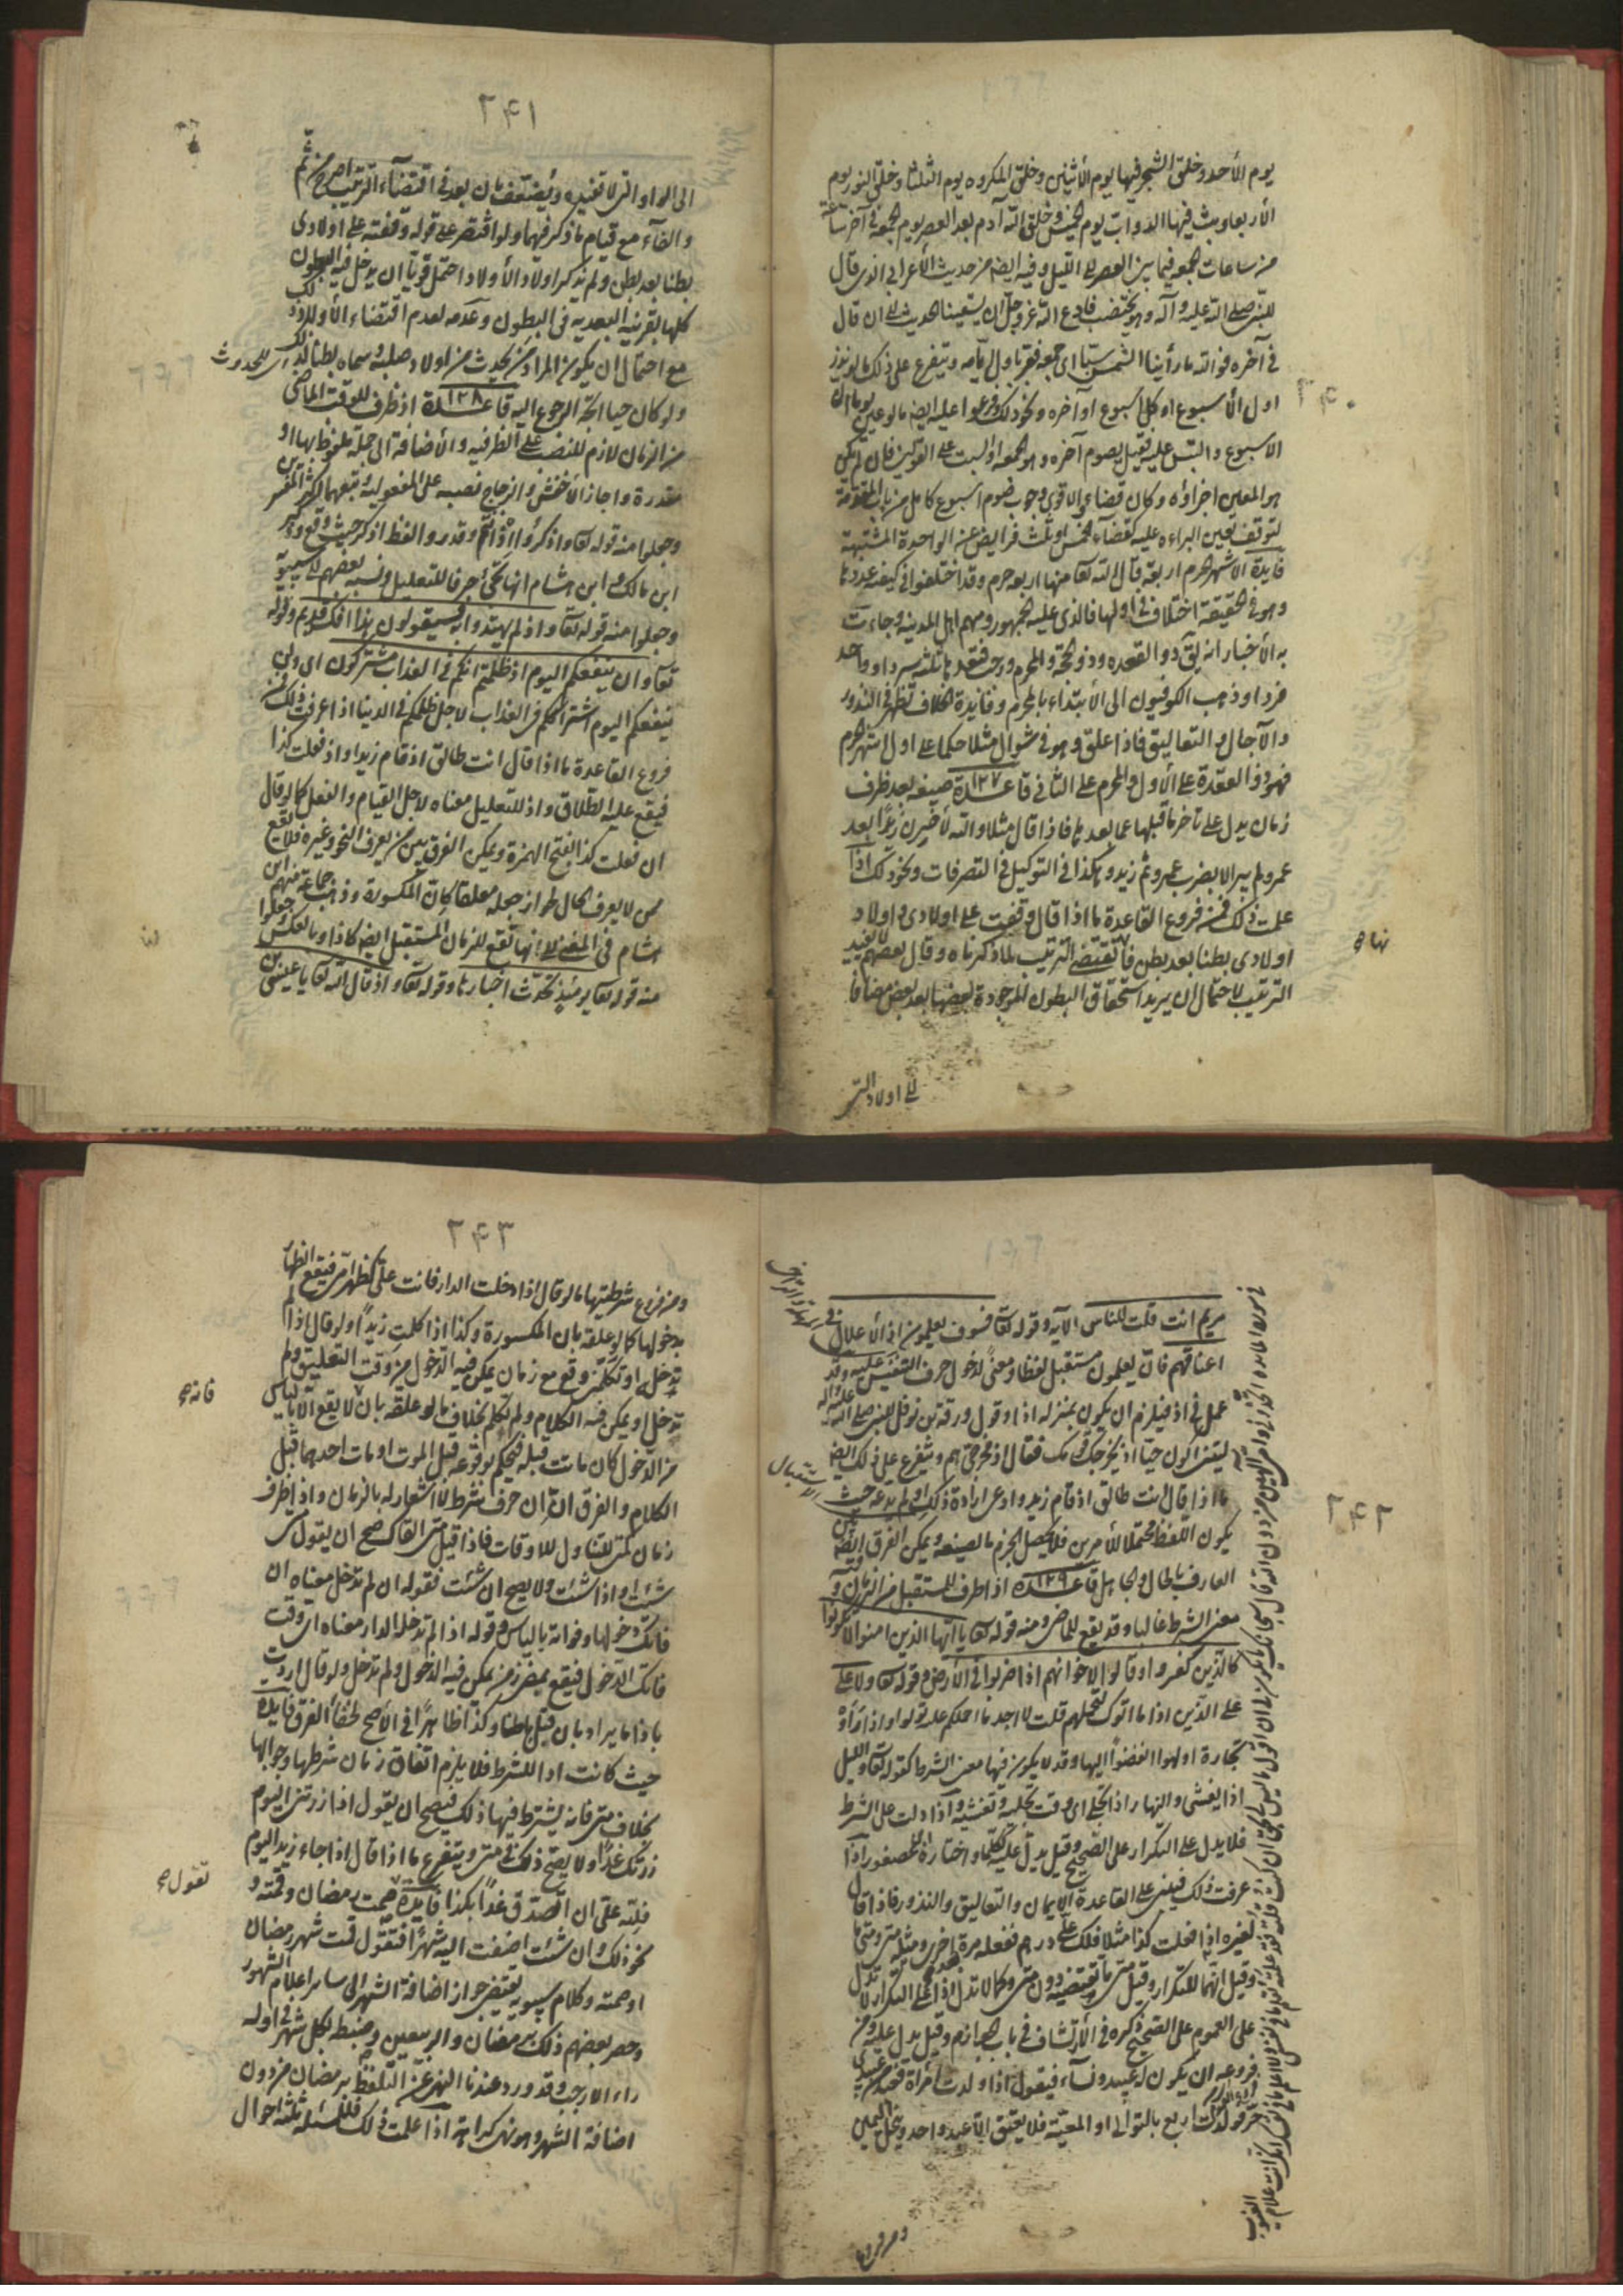 يوم الأحد وخلق الشجر فيها يوم الأثنين وخلق المكروه يوم الثلثا وخلق النور يوم
الأربعا وبث فيها الدواب يوم الخميس وخلق الله آدم بعد العصر يوم الجمعة في آخر ساعة
من ساعات الجمعه فيما بين العصر الى الليل وفيه ايضا من حديث الأعرابي الذي قال
للنبي صلى الله عليه وآله وهو يخطب فادع الله عز وجل ان يسقينا الحديث الى ان قال
في آخره فو الله ما رأينا الشمس سبتا اى جمعه ويتفرع على ذلك ما لو نذر
اول الأسبوع او كل اسبوع او آخره ونحو ذلك وفرعوا عليه ايضا ما لو عين يوما من
الاسبوع والتبس عليه فقيل يصوم آخره وهو الجمعه او السبت على القولين فان لم يكن
هو المعين اجزأه وكان قضاء والاقوى وجوب صوم اسبوع كامل من باب المقدمة
لتوقف يقين البراءه عليه كقضاء الخمس او ثلث فرايض عن الواحدة المشتبهة
فايدة الاشهر الحرم اربعة قال الله تعا منها اربعه حرم وقد اختلفوا في كيفية عددها
وهو في الحقيقة اختلاف في اولها فالذي عليه الجمهور ومنهم اهل المدينه وجاءت
به الأخبار انه يقال ذو القعده وذو الحجة والمحرم ورجب فتعدها ثلثه سرد او واحد
فرد او ذهب الكوفيون الى الأبتداء بالمحرم وفايدة الخلاف تظهر في النذور
والآجال والتعاليق فاذا علق وهو في شوال مثلا حكما على اول اشهر الحرم
فهو ذو القعدة على الأول والمحرم على الثاني قاعدة ١٢٧ صيغه بعد ظرف
زمان يدل على تاخر ما قبلها عما بعدها فاذا قال مثلا والله لأضربن زيدا بعد
عمرو لم يبر الا بضرب عمرو ثم زيد وهكذا في التوكيل في التصرفات ونحو ذلك اذا
علمت ذلك فمن فروع القاعدة ما اذا قال وقفت على اولادي واولاد
اولادي بطنا بعد بطن فانه يقتضي الترتيب لما ذكرناه وقال بعضهم لا يفيد
الترتيب لاحتمال ان يريد استحقاق البطون الموجودة بعضها بعد بعض مضافا
الى اولاد التي
٢۴٠
٢۴١
الى الواو التي لا تفيده ويضعف بان بعد في اقتضاء الترتيب اصرح من ثم
والفاء مع قيام ما ذكر فيهما ولو اقتصر على قوله وقفته على اولادي
بطنا بعد بطن ولم يذكر اولاد الأولاد احتمل قويا ان يدخل فيه البطون
كلها بقرينة البعديه في البطون وعدمه لعدم اقتضاء الأولاد ذلك
مع احتمال ان يكون المراد من يحدث من اولاد صلبه وسماه بطنا لذلك اى للحدوث
ولو كان حيا اتجه الرجوع اليه قاعدة ١٢٨ اذ ظرف للوقت الماضي
من الزمان لازم للنصب على الظرفيه والأضافة الى جملة ملفوظ بها او
مقدرة واجاز الأخفش والزجاج نصبه على المفعولية وتبعهما اكثر المفسرين
وجعلوا منه قوله تعا واذكروا اذ انتم وقدروا لفظ اذكر حيث وقع وذكر
ابن مالك وابن هشام انها تجئ حرفا للتعليل ونسبه بعضهم الى سيبويه
وجعلوا منه قوله تعا واذ لم يهتدوا به فسيقولون هذا افك قديم وقوله
تعا ولن ينفعكم اليوم اذ ظلمتم انكم في العذاب مشتركون اى ولن
ينفعكم اليوم اشتراككم في العذاب لاجل ظلمكم في الدنيا اذا عرفت ذلك فمن
فروع القاعدة ما اذا قال انت طالق اذ قام زيد او اذ فعلت كذا
فيقع عليه الطلاق واذ للتعليل معناه لاجل القيام والفعل كما لو قال
ان فعلت كذا بفتح الهمزة ويمكن الفرق بين من يعرف النحو وغيره فلا يقع
ممن لا يعرف الحال طوار جعله معلقا كان المكسورة وذهب جماعة منهم ابن
هشام في المغني الى انها تقع للزمان المستقبل ايضا كاذا وبالعكس جعلوا
منه قوله تعا يومئذ تحدث اخبارها وقوله تعا واذ قال الله يا عيسى بن
٢۴٢
مريم انت قلت للناس الآيه وقوله تعا فسوف يعلمون اذ الأغلال في
اعناقهم فان يعلمون مستقبل لفظا ومعنى لدخول حرف التنفيس عليه وقد
عمل في اذ فيلزم ان يكون بمنزله اذا وقول ورقة بن نوفل للنبي صلى الله عليه وآله
ليتني اكون حيا اذ يخرجك قومك فقال او مخرجي هم ويتفرع على ذلك ايضا
ما اذا قال انت طالق اذ قام زيد وادعى ارادة ذلك او لم يدعه حيث
يكون اللفظ محتملا للأمرين فلا يحصل الجزم بالصيغه ويمكن الفرق ايضا بين
العارف بالحال والجاهل قاعدة ١٢٩ اذا ظرف للمستقبل من الزمان وفيه
معنى الشرط غالبا وقد يقع للماضي ومنه قوله تعا يا ايها الذين امنوا لا تكونوا
كالذين كفروا وقالوا لاخوانهم اذا ضربوا في الأرض وقوله تعا ولا على
على الذين اذا ما اتوك لتحملهم قلت لا اجد ما احملكم عليه تولوا واذا رأوا
تجارة او لهوا انفضوا اليها وقد لا يكون فيها معنى الشرط كقوله تعا والليل
اذا يغشى والنهار اذا تجلى اى وقت تجليه وتغشيه واذا دلت على الشرط
فلا يدل على التكرار على الصحيح وقيل يدل عليه ككلما واختاره ابن عصفور اذا
عرفت ذلك فيبنى على القاعدة الأيمان والتعاليق والنذور فاذا قال
لغيره اذا فعلت كذا مثلا فلك على درهم ففعله مرة اخرى ومثله متى ومتى ما
وقيل انهما للتكرار وقيل متى ما تقتضيه دون متى وكما لا تدل اذا على التكرار لا تدل
على العموم على الصحيح ذكره في الأرتشاف في باب الجوازم وقيل يدل عليه ومن
فروعه ان يكون له عبيد ونساء فيقول اذا ولدت امرأة فعبد من عبيدي
حر فولدت اربع بالتوالي او المعية فلا يعتق الا عبد واحد وينحل اليمين
ومن فروع
٢۴٣
ومن فروع شرطيتها ما لو قال اذا دخلت الدار فانت علي كظهر امي فيقع الظهار
بدخولها كما لو علقه بان المكسورة وكذا اذا كلمت زيدا ولو قال اذا لم
تدخلي او تكلمي وقع مع زمان يمكن فيه الدخول من وقت التعليق ولم
تدخل او يمكن فيه الكلام ولم تكلم بخلاف ما لو علقه بان لا يقع الا باليأس
من الدخول كان مات قبله فيحكم بوقوعه قبل الموت او مات احدهما قبل
الكلام والفرق ان ان حرف شرط لا اشعار له بالزمان واذا ظرف
زمان كمتى للتناول للاوقات فاذا قيل متى القاك صح ان يقول متى
شئت او اذا شئت ولا يصح ان شئت فقوله ان لم تدخل معناه ان
فاتك دخولها وفواته بالياس وقوله اذا لم تدخل الدار معناه اى وقت
فاتك الدخول فيقع بمضي زمن يمكن فيه الدخول ولم تدخل ولو قال اردت
باذا ما يراد بان قبل باطنا وكذا ظاهرا في الأصح لخفاء الفرق فايدة
حيث كانت اذا للشرط فلا يلزم اتفاق زمان شرطها وجوابها
بخلاف متى فانه يشترط فيها ذلك فيصح ان يقول اذا زرتني اليوم
زرتك غدا ولا يصح ذلك في متى ويتفرع ما اذا قال اذا جاء زيد اليوم
فلله علي ان اتصدق غدا بكذا فايدة صمت رمضان وقمته و
نحو ذلك وان شئت اضفت اليه شهرا فتقول قمت شهر رمضان
او صمته وكلام سيبويه يقتضي جواز اضافة الشهر الى ساير اعلام الشهور
وحصر بعضهم ذلك برمضان والربيعين وضبطه بكل شهر في اوله
راء الا رجب وقد ورد عندنا النهي عن التلفظ برمضان من دون
اضافة الشهر وهو نهي كراهة اذا علمت ذلك فللمسئلة ثلثة احوال
فانه صح
تقول صح